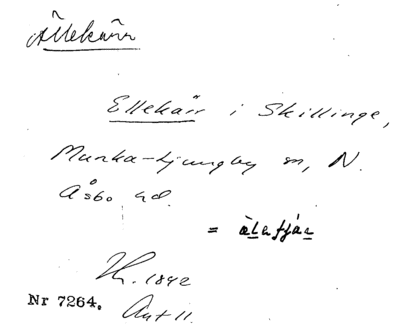 Ällekärr
Ellekärr i Skillinge,
Munka-Ljungby sn, N.
Åsbo hd.
=
1892
Nr 7264. Ant 11.